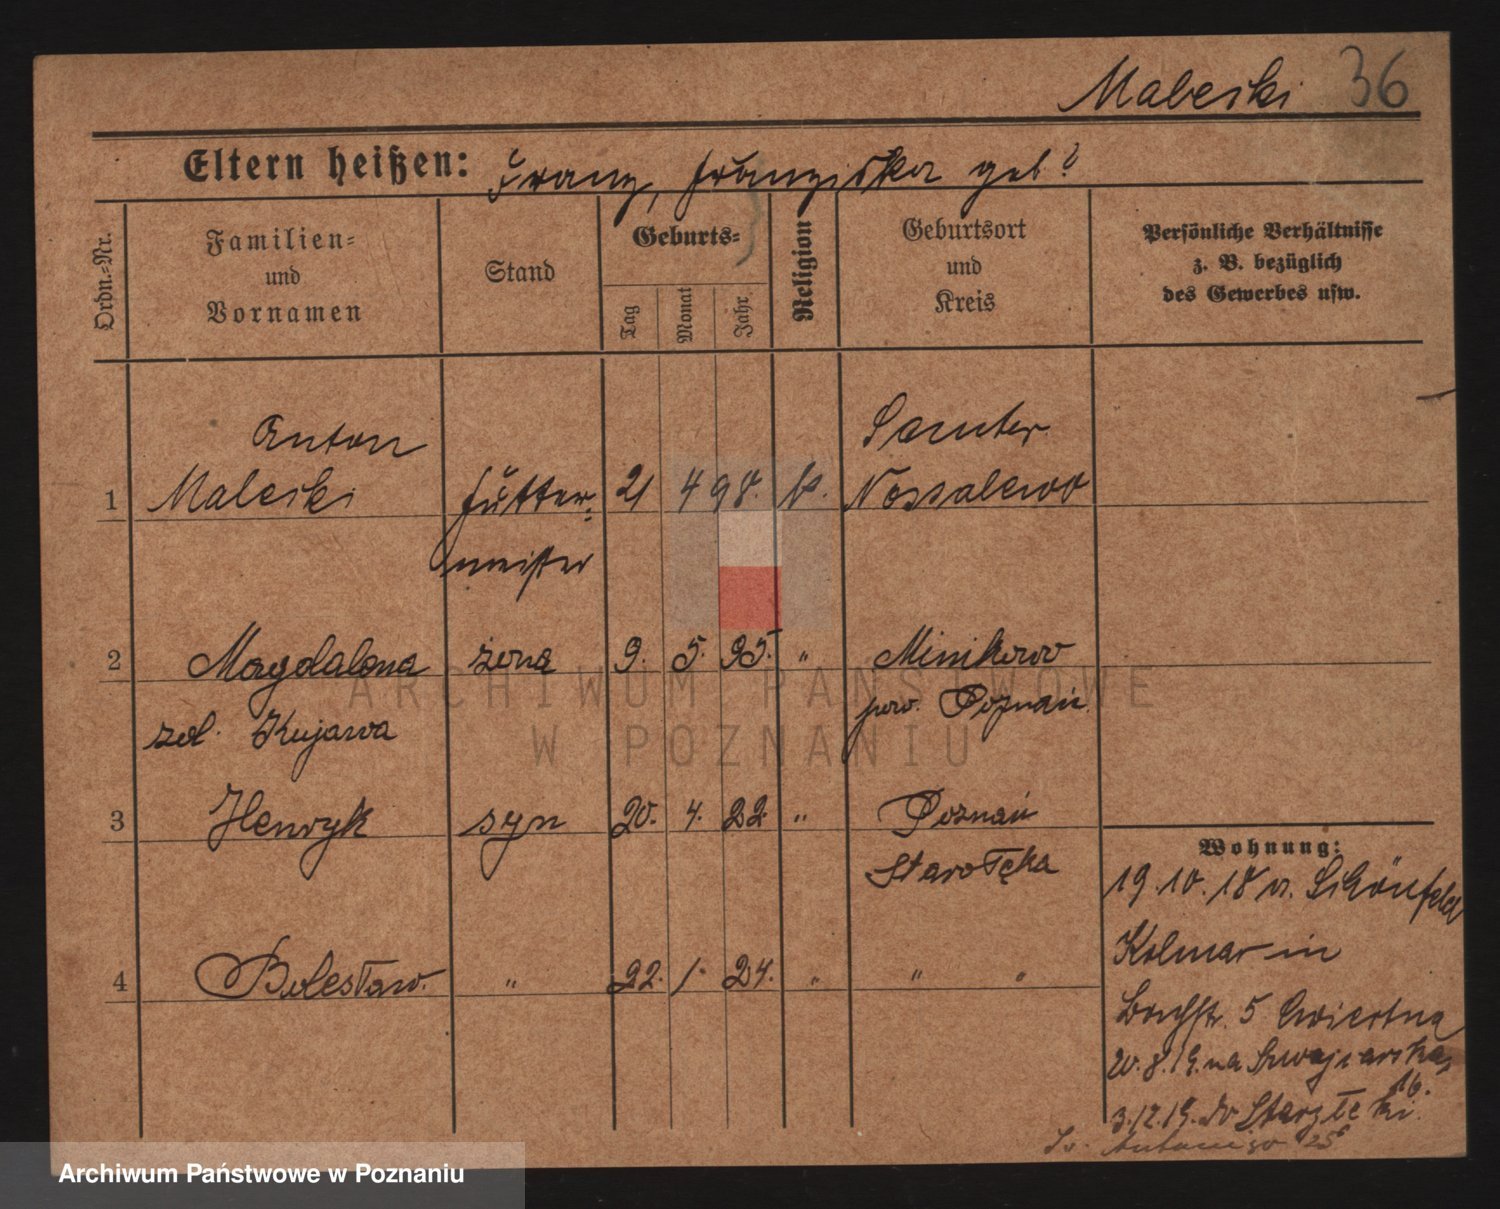 Maleski 36
Eltern heißen: Franz, Franziska geb?
Ordn.-Nr.
Familien-
und
Vornamen
Stand
Geburts-
Tag
Monat
Jahr
Religion
Geburtsort
und
Kreis
Persönliche Verhältnisse
z. B. bezüglich
des Gewerbes usw.
Anton Samter
1 Maleski Futter- 21 4 98. k. Nossalewo
meister
2 Magdalena żona 9. 5. 95. " Minikowo
zol. Kujawa pow. Poznań
3 Henryk syn 20. 4. 22. " Poznań
Starołęka
4 Bolesław. " 22. 1. 24. " " "
Wohnung:
19.10.18 v. Schönfeld
Kolmar in
5 Ćwiertna
20.8.19. na Szwajcarska
16.
3.12.19. do Starołęki.
Św. Antoniego 25
ARCHIWUM PAŃSTWOWE
W POZNANIU
Archiwum Państwowe w Poznaniu